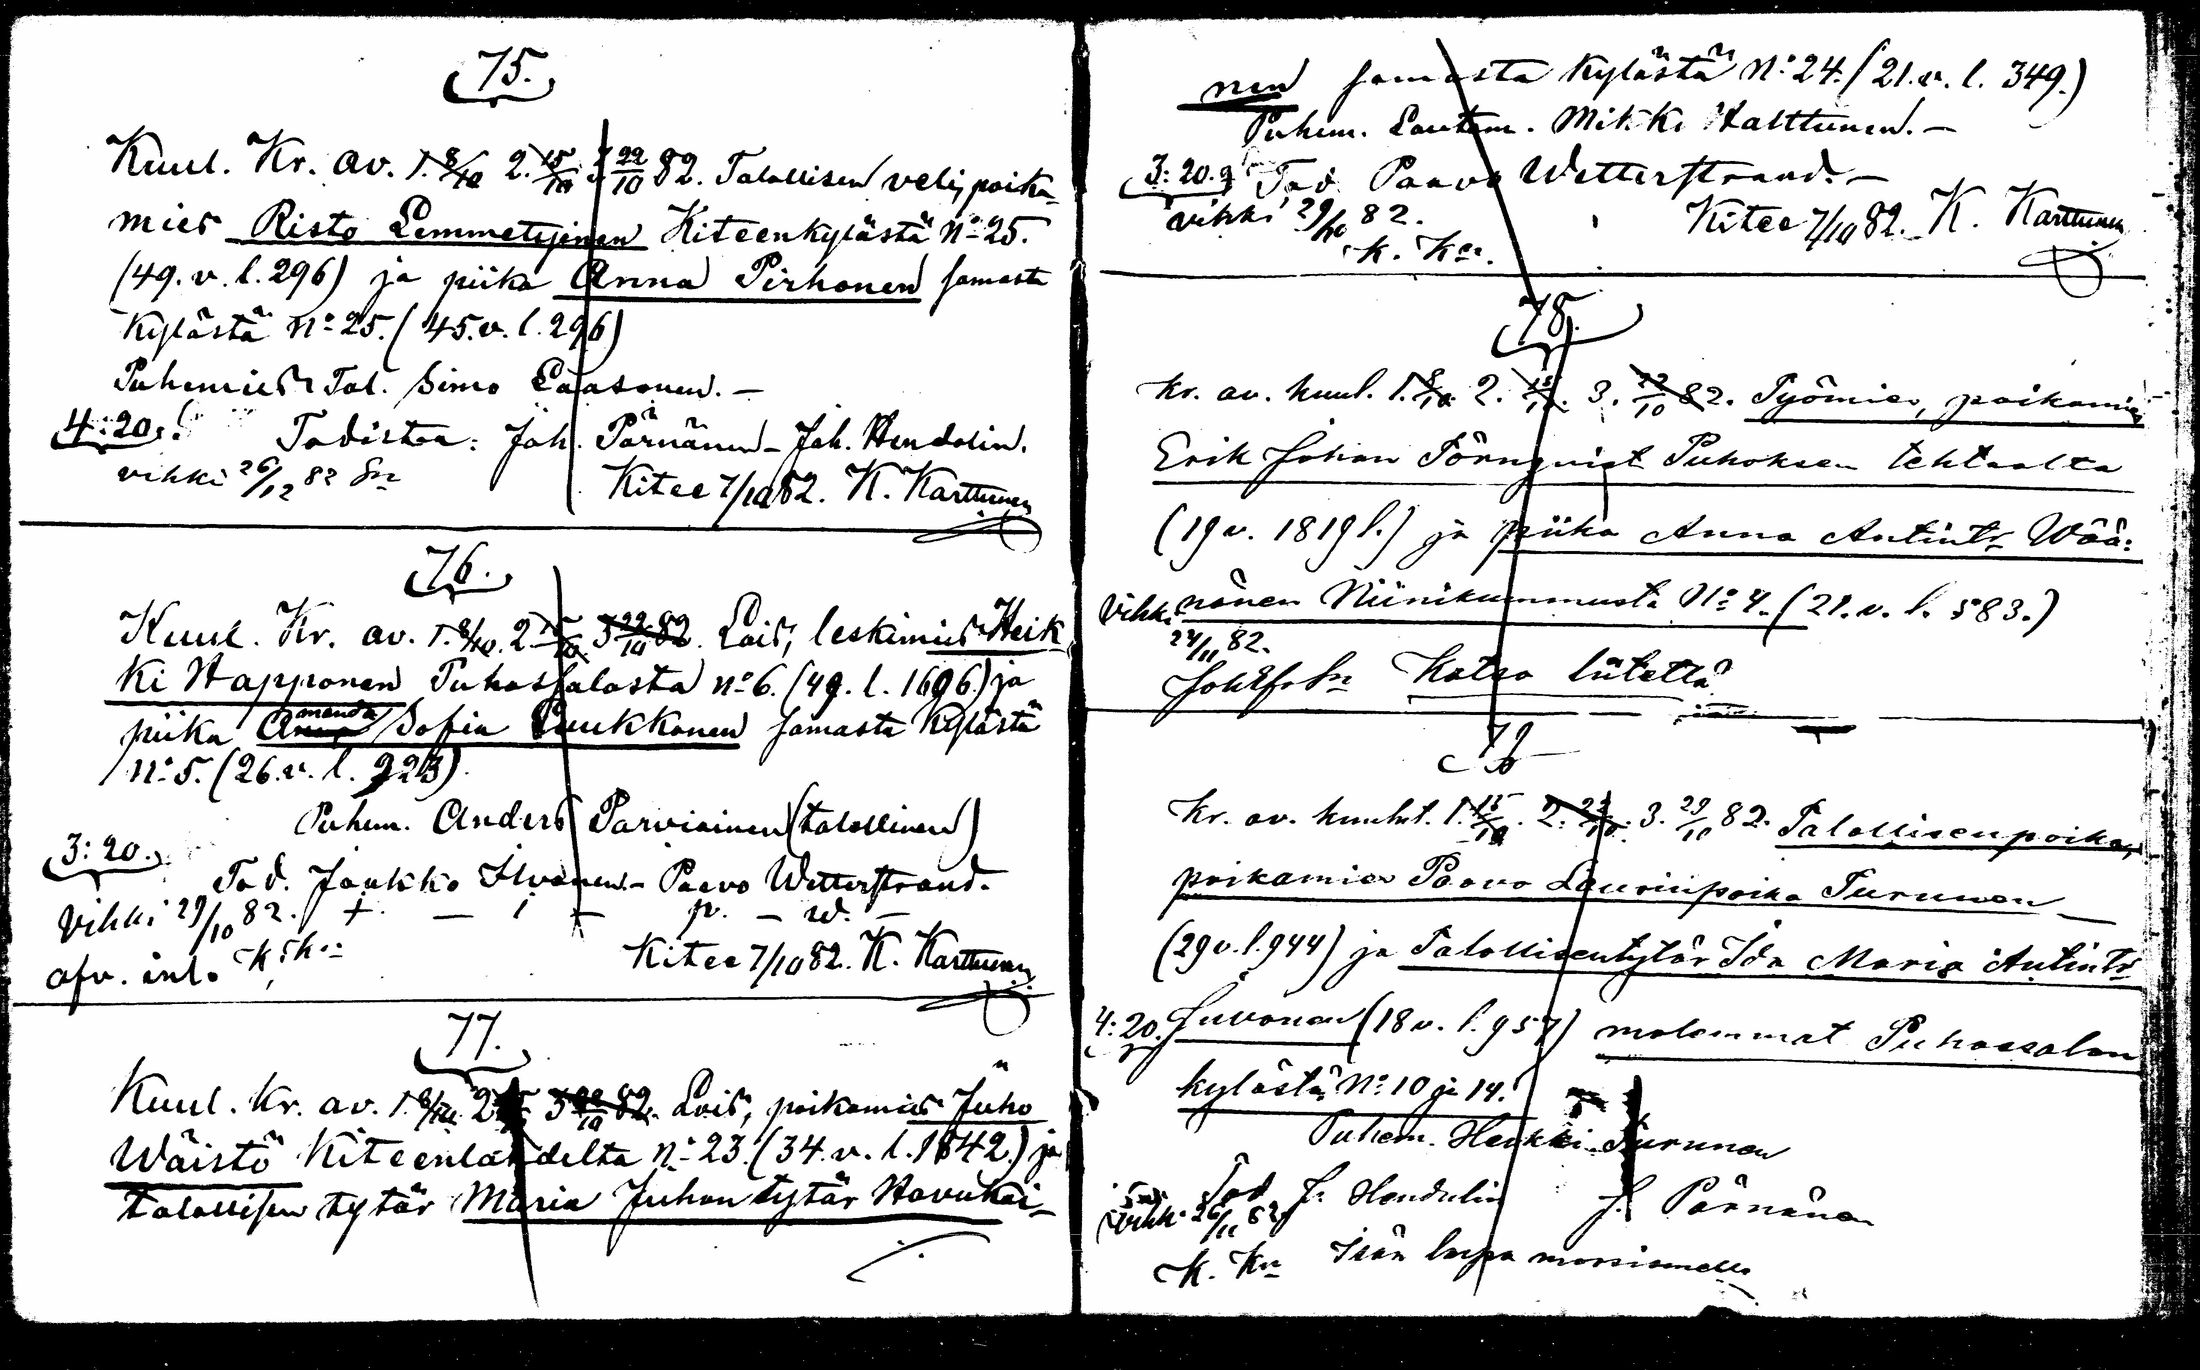 75.
Kuul. Kr. av. 1. 8/10 2. 15/10 3 22/10 82. Talollisen veli, poika-
mies Risto Lemmetyinen Kiteenkylästä No 25.
(49. v. l. 296) ja piika Anna Pirhonen samasta
Kylästä No 25. (45. v. l. 296)
Puhemies Tal. Simo Laasonen. —
4:20.
Todistaa: Joh. Pärnänen - Joh. Hendolin.
vihki 26/12 82
Kitee 7/10 82. K. Karttunen
76.
Kuul. Kr. av. 1. 8/10. 2. 15/10 3 22/10 82. Lois, leskimies Heik
ki Happonen Puhossalosta No 6. (49. l. 1696.) ja
piika Amanda Sofia Luukkonen samasta Kylästä
No 5. (26. v. l. 923).
Puhem. Anders Parviainen (talollinen)
3:20.
Tod. Jaakko Ilvonen - Paavo Wetterstrand.
vihki 29/10 82. + — i + p. — w. —
Kitee 7/10 82. K. Karttunen
77.
Kuul. Kr. av. 1. 8/10. 2 15 3 22/10 82. Lois, poikamies Juho
Wäistö Kiteenlahdelta No 23. (34. v. l. 1842.) ja
talollisen tytär Maria Juhon tytär Havukai-
nen samasta Kylästä No 24. (21. v. l. 349.)
Puhem. Lautam. Mikki Halttunen. —
3:20.
Tod. Paavo Wetterstrand. —
vihki 29/10 82.
Kitee 7/10 82. K. Karttunen
K. Kn.
78.
Kr. av. kuul. 1. 8/10. 2. 15/10. 3. 22/10 82. Työmies, poikamies
Erik Johan Törnqvist Puhoksen tehtaalta
(19 v. 1819 l.) ja piika Anna Antintr Wää:
nänen Niinikummusta No 4. (21. v. l. 583.)
Vihki
24/11 82.
Katso liitettä
79
Kr. av. kuulut. 1. 15/10. 2. 22/10. 3. 29/10 82. Talollisenpoika,
poikamies Paavo Laurinpoika Turunen —
(29 v. l. 944) ja Talollisentytär Ida Maria Antintr
4:20. Juvonen (18 v. l. 957) molemmat Puhossalon
kylästä No 10 ja 14.
Puhem. Heikki Turunen
Tod J. Hendolin J. Pärnänen
vihki 26/11 82
K. Kn Isän lupa morsiamella